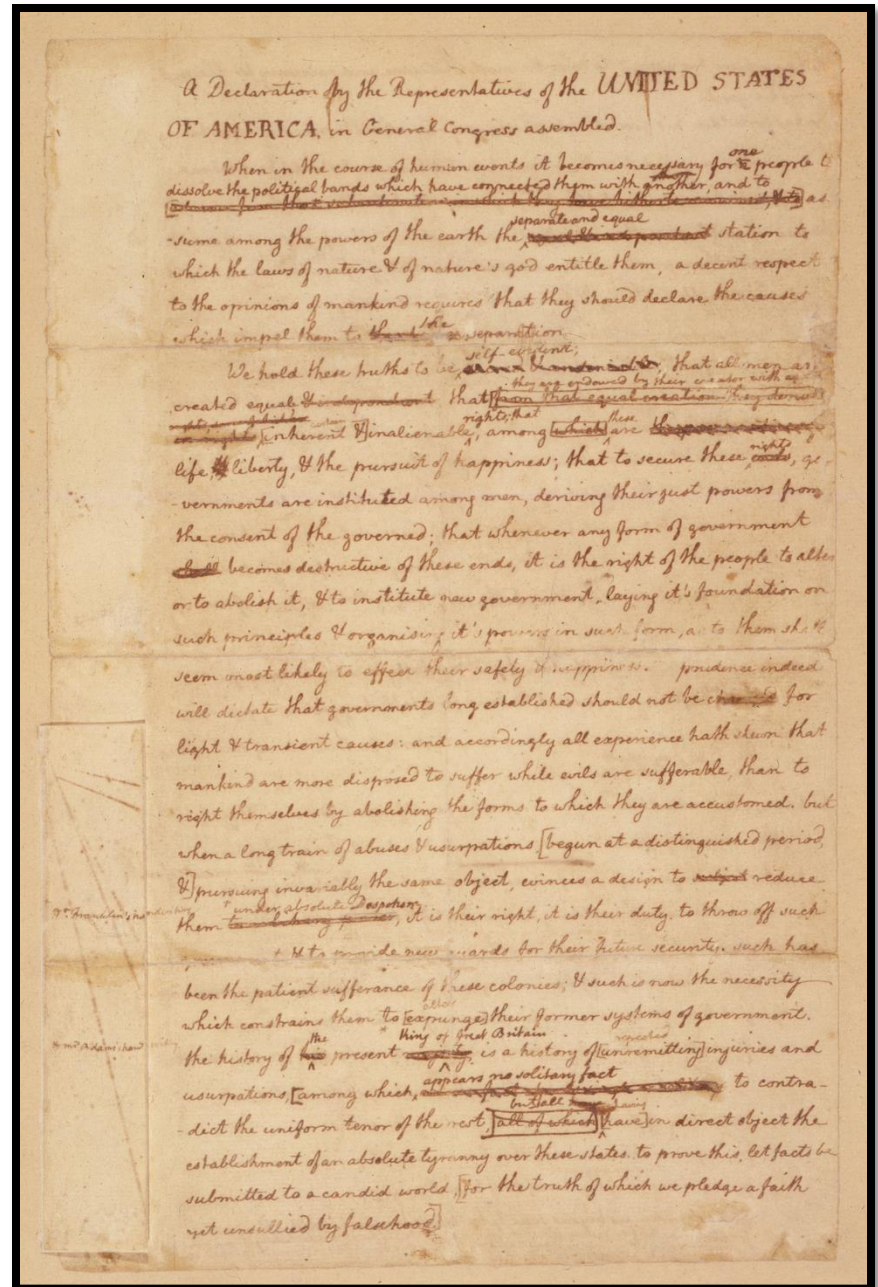 A Declaration by the Representatives of the UNITED STATES
OF AMERICA, in General Congress assembled.
one
When in the course of human events it becomes necessary for people t
dissolve the political bands which have connected them with another, and to
as
separate and equal
-sume among the powers of the earth the station to
which the laws of nature & of nature's god entitle them, a decent respect
to the opinions of mankind requires that they should declare the causes
the
which impel them to separation
self-evident;
We hold these truths to be , that all men ar
they are endowed by their creator with
created equal & independant that [from that equal creation they derive
rights; that these
[inherent &] inalienable, among [which] are
rights
life, liberty, & the pursuit of happiness; that to secure these ends, go-
-vernments are instituted among men, deriving their just powers from
the consent of the governed; that whenever any form of government
shall becomes destructive of these ends, it is the right of the people to alter
or to abolish it, & to institute new government, laying it's foundation on
such principles & organising it's powers in such form, as to them shall
seem most likely to effect their safety & happiness. prudence indeed
will dictate that governments long established should not be for
light & transient causes: and accordingly all experience hath shewn that
mankind are more disposed to suffer while evils are sufferable, than to
right themselves by abolishing the forms to which they are accustomed. but
when a long train of abuses & usurpations [begun at a distinguished period,
&] pursuing invariably the same object, evinces a design to reduce
under absolute Despotism
Dr. Franklin's handwriting
them , it is their right, it is their duty, to throw off such
& to provide new guards for their future security. such has
been the patient sufferance of these colonies; & such is now the necessity
alter
which constrains them to [expunge] their former systems of government.
the King of Great Britain repeated
Mr. Adams' handwriting
the history of his present majesty is a history of [unremitting] injuries and
appears no solitary fact
usurpations, [among which, to contra-
but all having
-dict the uniform tenor of the rest, [all of which] [have] in direct object the
establishment of an absolute tyranny over these states. to prove this, let facts be
submitted to a candid world, [for the truth of which we pledge a faith
yet unsullied by falsehood]